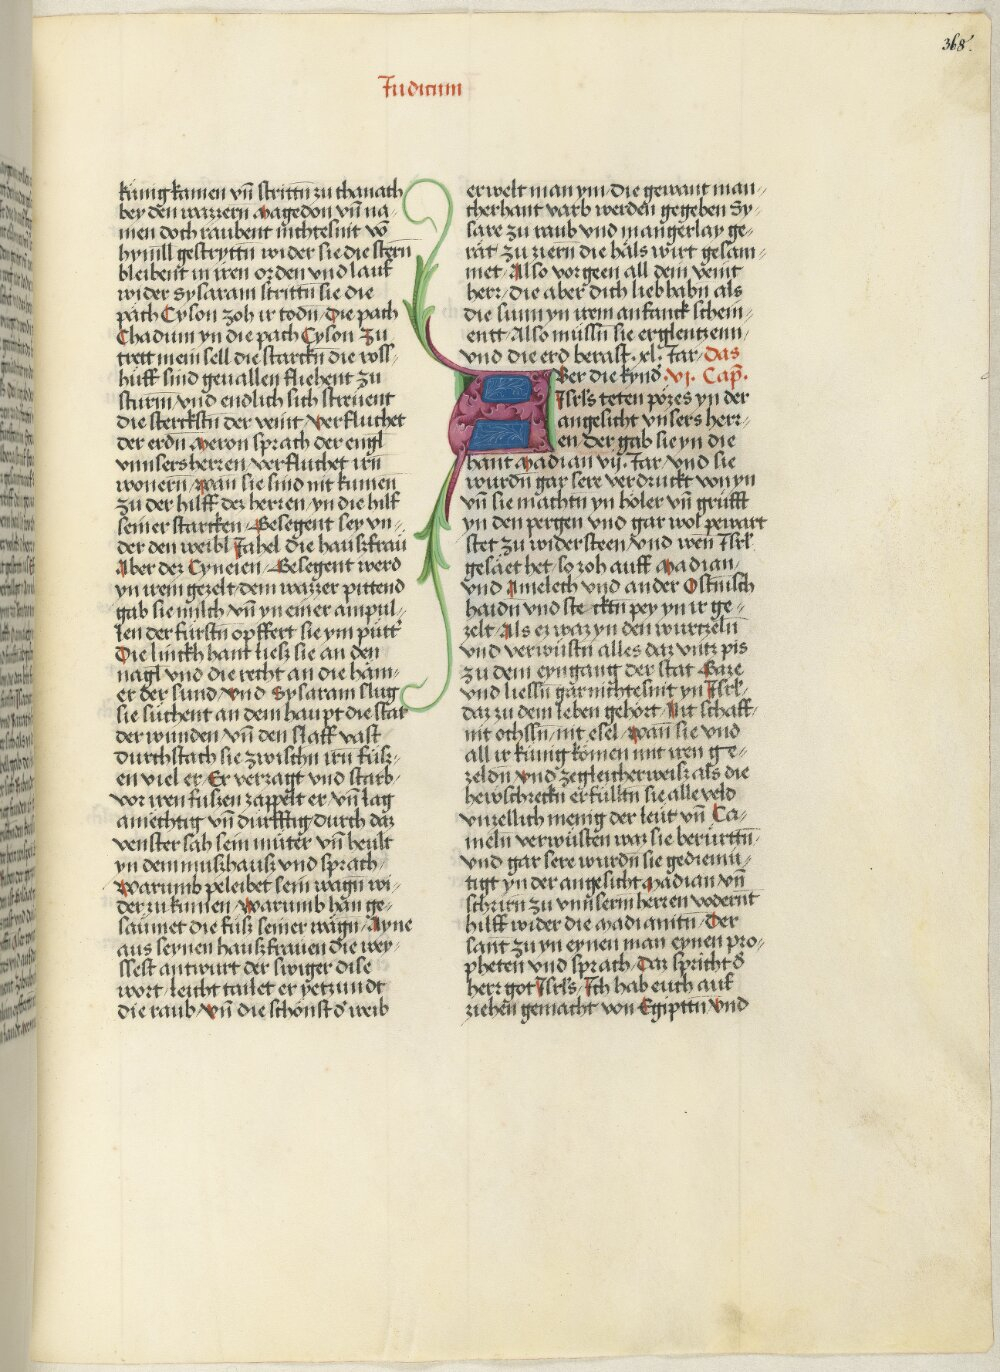 368.
Judicum
kunig kamen vñ strittñ zu thanach
bey den wazzern Magedon vñ na-
men doch raubent nichtesnit võ
hymill gestryttñ wider sie die stern
bleibent in iren orden vnd lauf
wider Sysaram strittñ sie die
pãch Cyson zoh ir todñ / Die pach
Chadumi yn die pach Cyson Zu
trett mein sell die starckñ die ross-
hüff sind geuallen fliehent zu
sturm / vnd endlich sich streuent
die sterckstñ der veint / Verfluchet
der erdñ Meron sprach der engl
vnnsers herren / verfluchet irñ
wonern / Wan sie sind nit kumen
zu der hilff dez herren / yn die hilf
seiner starcken / Gesegent sey vn-
der den weibñ Jahel die hauszfrau
Aber dez Cyneien / Gesegent werd
yn irem gezelt / dem wazzer pittend
gab sie milch vñ yn einer ampul-
len der fürstñ opffert sie ym pütt'
Die linckh hant liesz sie an den
nagl vnd die recht an die häm-
er der sund / vnd Sysaram slug
sie süchent an dem haupt die stat
der wunden vñ den slaff vast
durchstach sie zwischñ irñ füsz-
en viel er / Er verzagt vnd starb /
vor iren füszen zappelt er / vñ lag
amechtig vñ dürfftig / durch daz
venster sah sein müter vñ heult
yn dem muszhausz vnd sprach /
Warumb peleibet sein wagñ wi-
der zu kumen / Warumb han ge-
saumet die füsz seiner wägñ / Ayne
aus seynen hauszfrauen die wey-
ssest antwurt der swiger dise
wort / leicht tailet er yetzundt
die raub / Vñ die schönst d' weib
erwelt man ym / die gewant man-
cherhant varb werden gegeben Sy-
sare zu raub vnd mangerlay ge-
rät zu ziern die häls wirt gesam-
met / Also vorgeen all dein veint
herr / die aber dich lieb habñ als
die sunn yn irem anfanck schein-
entt / Also müssñ sie erglentzenn /
vnd die erd berast . xl. Jar / Das
Ber die kynd . VI. Cap̃.
Isrls teten pözes yn der
angesicht vnsers herr-
en / Der gab sie yn die
hant Madian vij. Jar / vnd sie
wurdñ gar sere verdruckt von yn
vñ sie machtñ yn höler vñ grüfft
yn den pergen vnd gar wol pewart
stet zu widersteen / vnd wen Isrl'
gesäet het / so zoh auff Madian /
vnd Amelech vnd ander Ostnisch
haidñ vnd ste ckñ pey yn ir ge-
zelt / Als ez waz yn den wurtzelñ
vnd verwüstñ alles daz vntz pis
zu dem eyngang der stat Gaze
vnd liessñ gar nichtesnit yn Isrl'
daz zu dem leben gehört / Nit schaff-
nit ochssñ / nit esel / Wan sie vnd
all ir kunig komen mit iren ge-
zeldñ vnd ze gleicherweisz als die
hewschreckñ erfülltñ sie alle veld
vnzellich menig der leut vñ Ca-
meln verwüsten waz sie berürttñ /
vnd gar sere wurdñ sie gediemü-
tigt yn der angesicht Madian vñ
schrirñ zu vnnserm herren vodernt
hilff wider die Madianitñ / Der
sant zu yn eynen man eynen pro-
pheten vnd sprach / Daz spricht d'
herr got Isrls / Ich hab euch auf
ziehen gemacht von Egipttñ / vnd